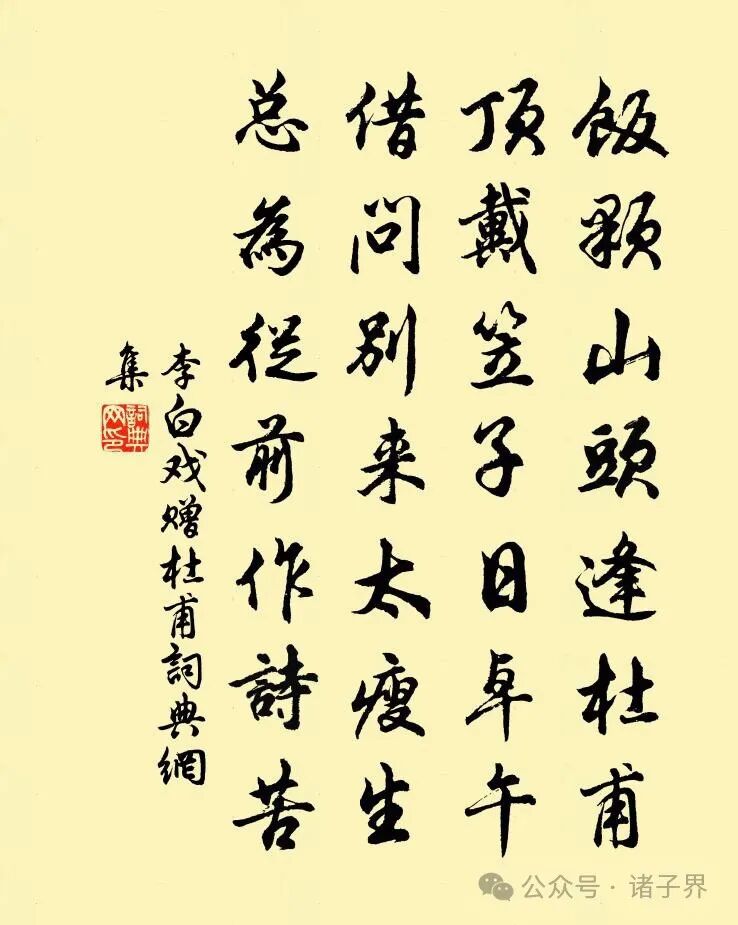 飯顆山頭逢杜甫
頂戴笠子日卓午
借问别来太瘦生
总為從前作詩苦
李白戏赠杜甫詞典網
集
詞典网印
公众号·诸子界